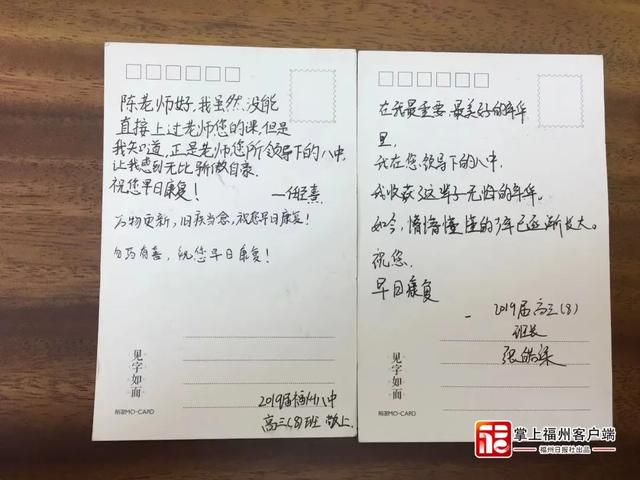 陈老师好，我虽然没能
直接上过老师您的课，但是
我知道，正是老师您所领导下的八中，
让我感到无比骄傲自豪。
祝您早日康复！
万物更新，旧疾当愈，祝您早日康复！
勿药有喜，祝您早日康复！
见字如面
MO-CARD
2019届福州八中
高三(8)班 敬上
在我最重要、最美好的年华
里，
我在您领导下的八中，
我收获了这辈子无悔的年华。
如今，懵懵懂懂的少年已逐渐长大。
祝您，
早日康复
2019届高三(8)
班长
见字如面
MO-CARD
掌上福州客户端
福州日报社出品